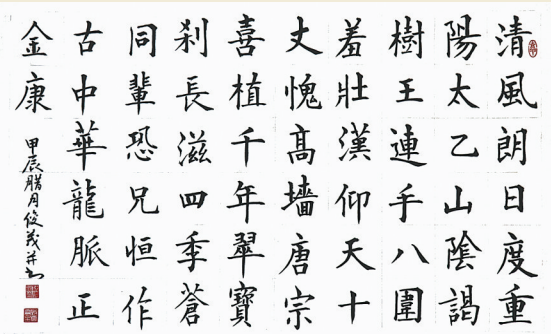 清風朗日度重
陽太乙山陰謁
樹王連手八圍
羞壯漢仰天十
丈愧高墻唐宗
喜植千年翠寶
刹長滋四季蒼
同輩恐兄恒作
古中華龍脈正
金康
甲辰腊月俊茂并書